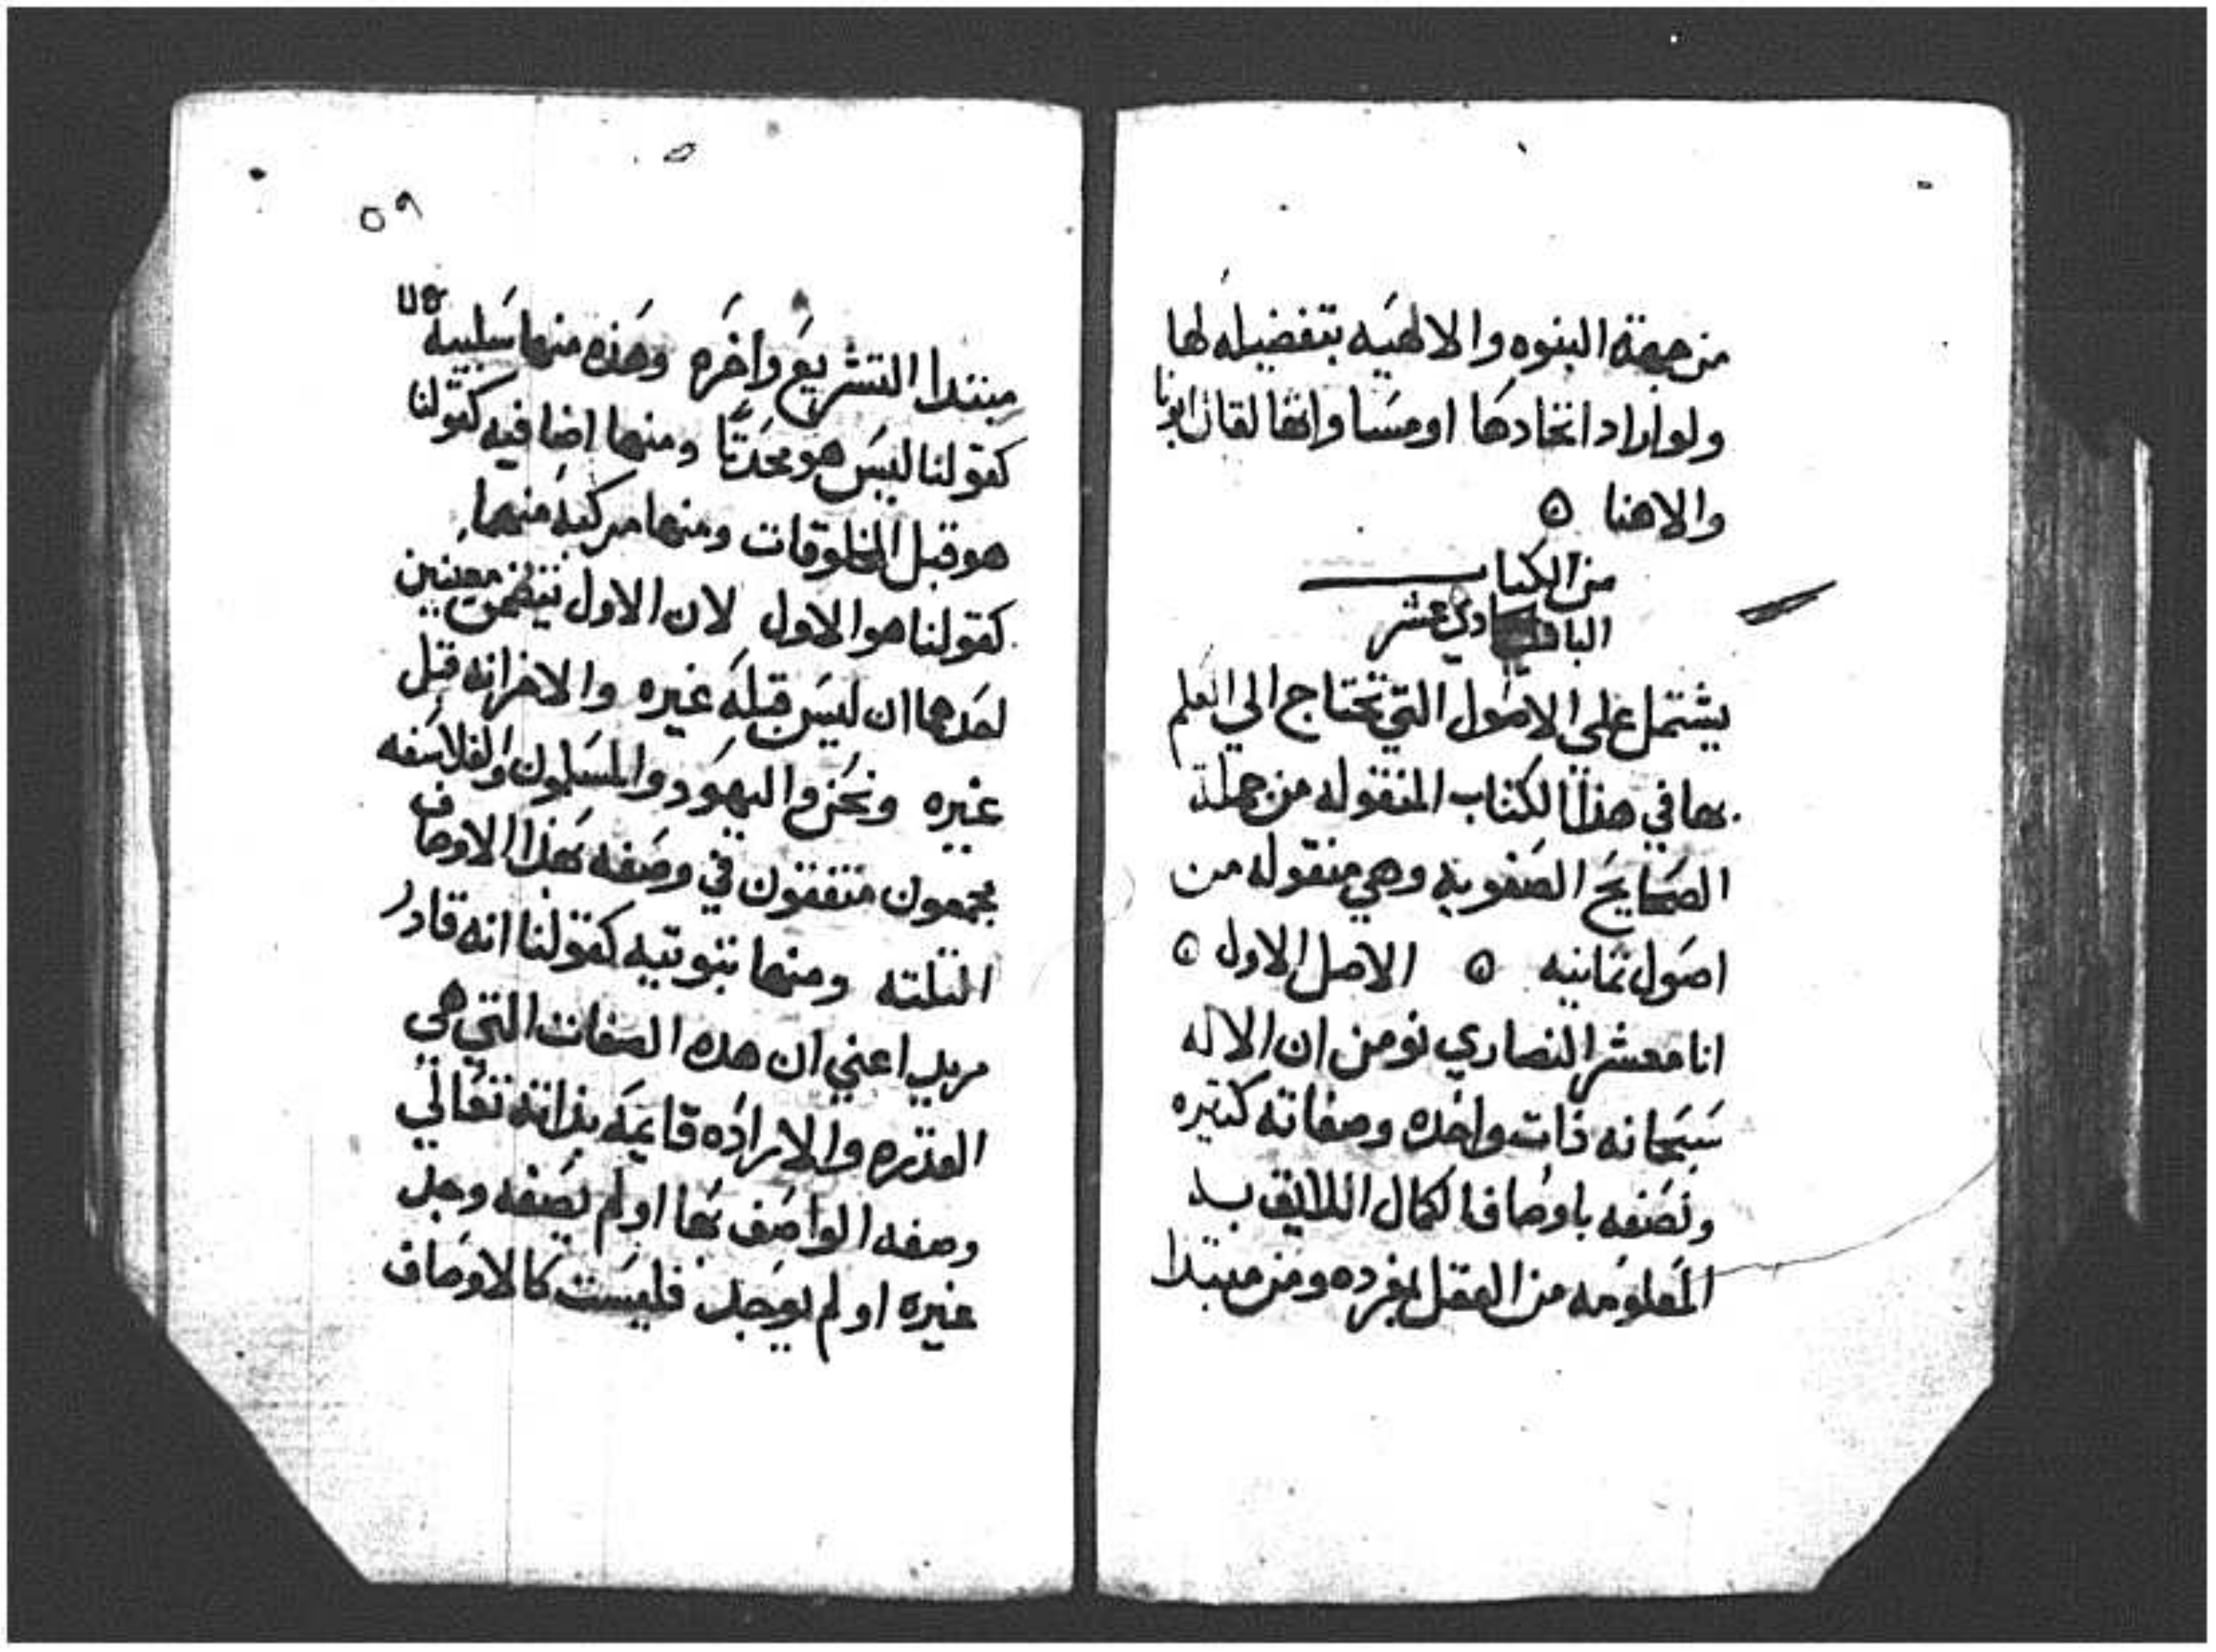 من جهة البنوه والالهيه بتفضيله لها
ولو اراد اتحادها او مساواتها لقال ابونا
والاهنا ه
من الكتاب
الباب دي عشر
يشتمل علي الاصول التي تحتاج الي العلم
بها في هذا الكتاب المنقوله من جملة
الصحايح الصفويه وهي منقوله من
اصول ثمانيه ه الاصل الاول ه
انا معشر النصاري نومن ان الاله
سبحانه ذات واحده وصفاته كتيره
ونصفه باوصاف الكمال اللايق به
المعلومه من العقل بمفرده ومن مبتدا
٥٩
مبتدا التشريع واخره وهذه منها سلبيه
كقولنا ليس هو محدثا ومنها اضافيه كقولنا
هو قبل المخلوقات ومنها مركبه منهما
كقولنا هو الاول لان الاول يتضمن معنيين
احدهما ان ليس قبله غيره والاخر انه قبل
غيره ونحن واليهود والمسلمون والفلاسفه
مجمعون متفقون في وصفه بهذا الاوصاف
التلته ومنها تبوتيه كقولنا انه قادر
مريد اعني ان هده الصفات التي هي
القدره والاراده قايمه بذاته تعالي
وصفه الواصف بها او لم يصفه وجد
غيره او لم يوجد فليست كالاوصاف